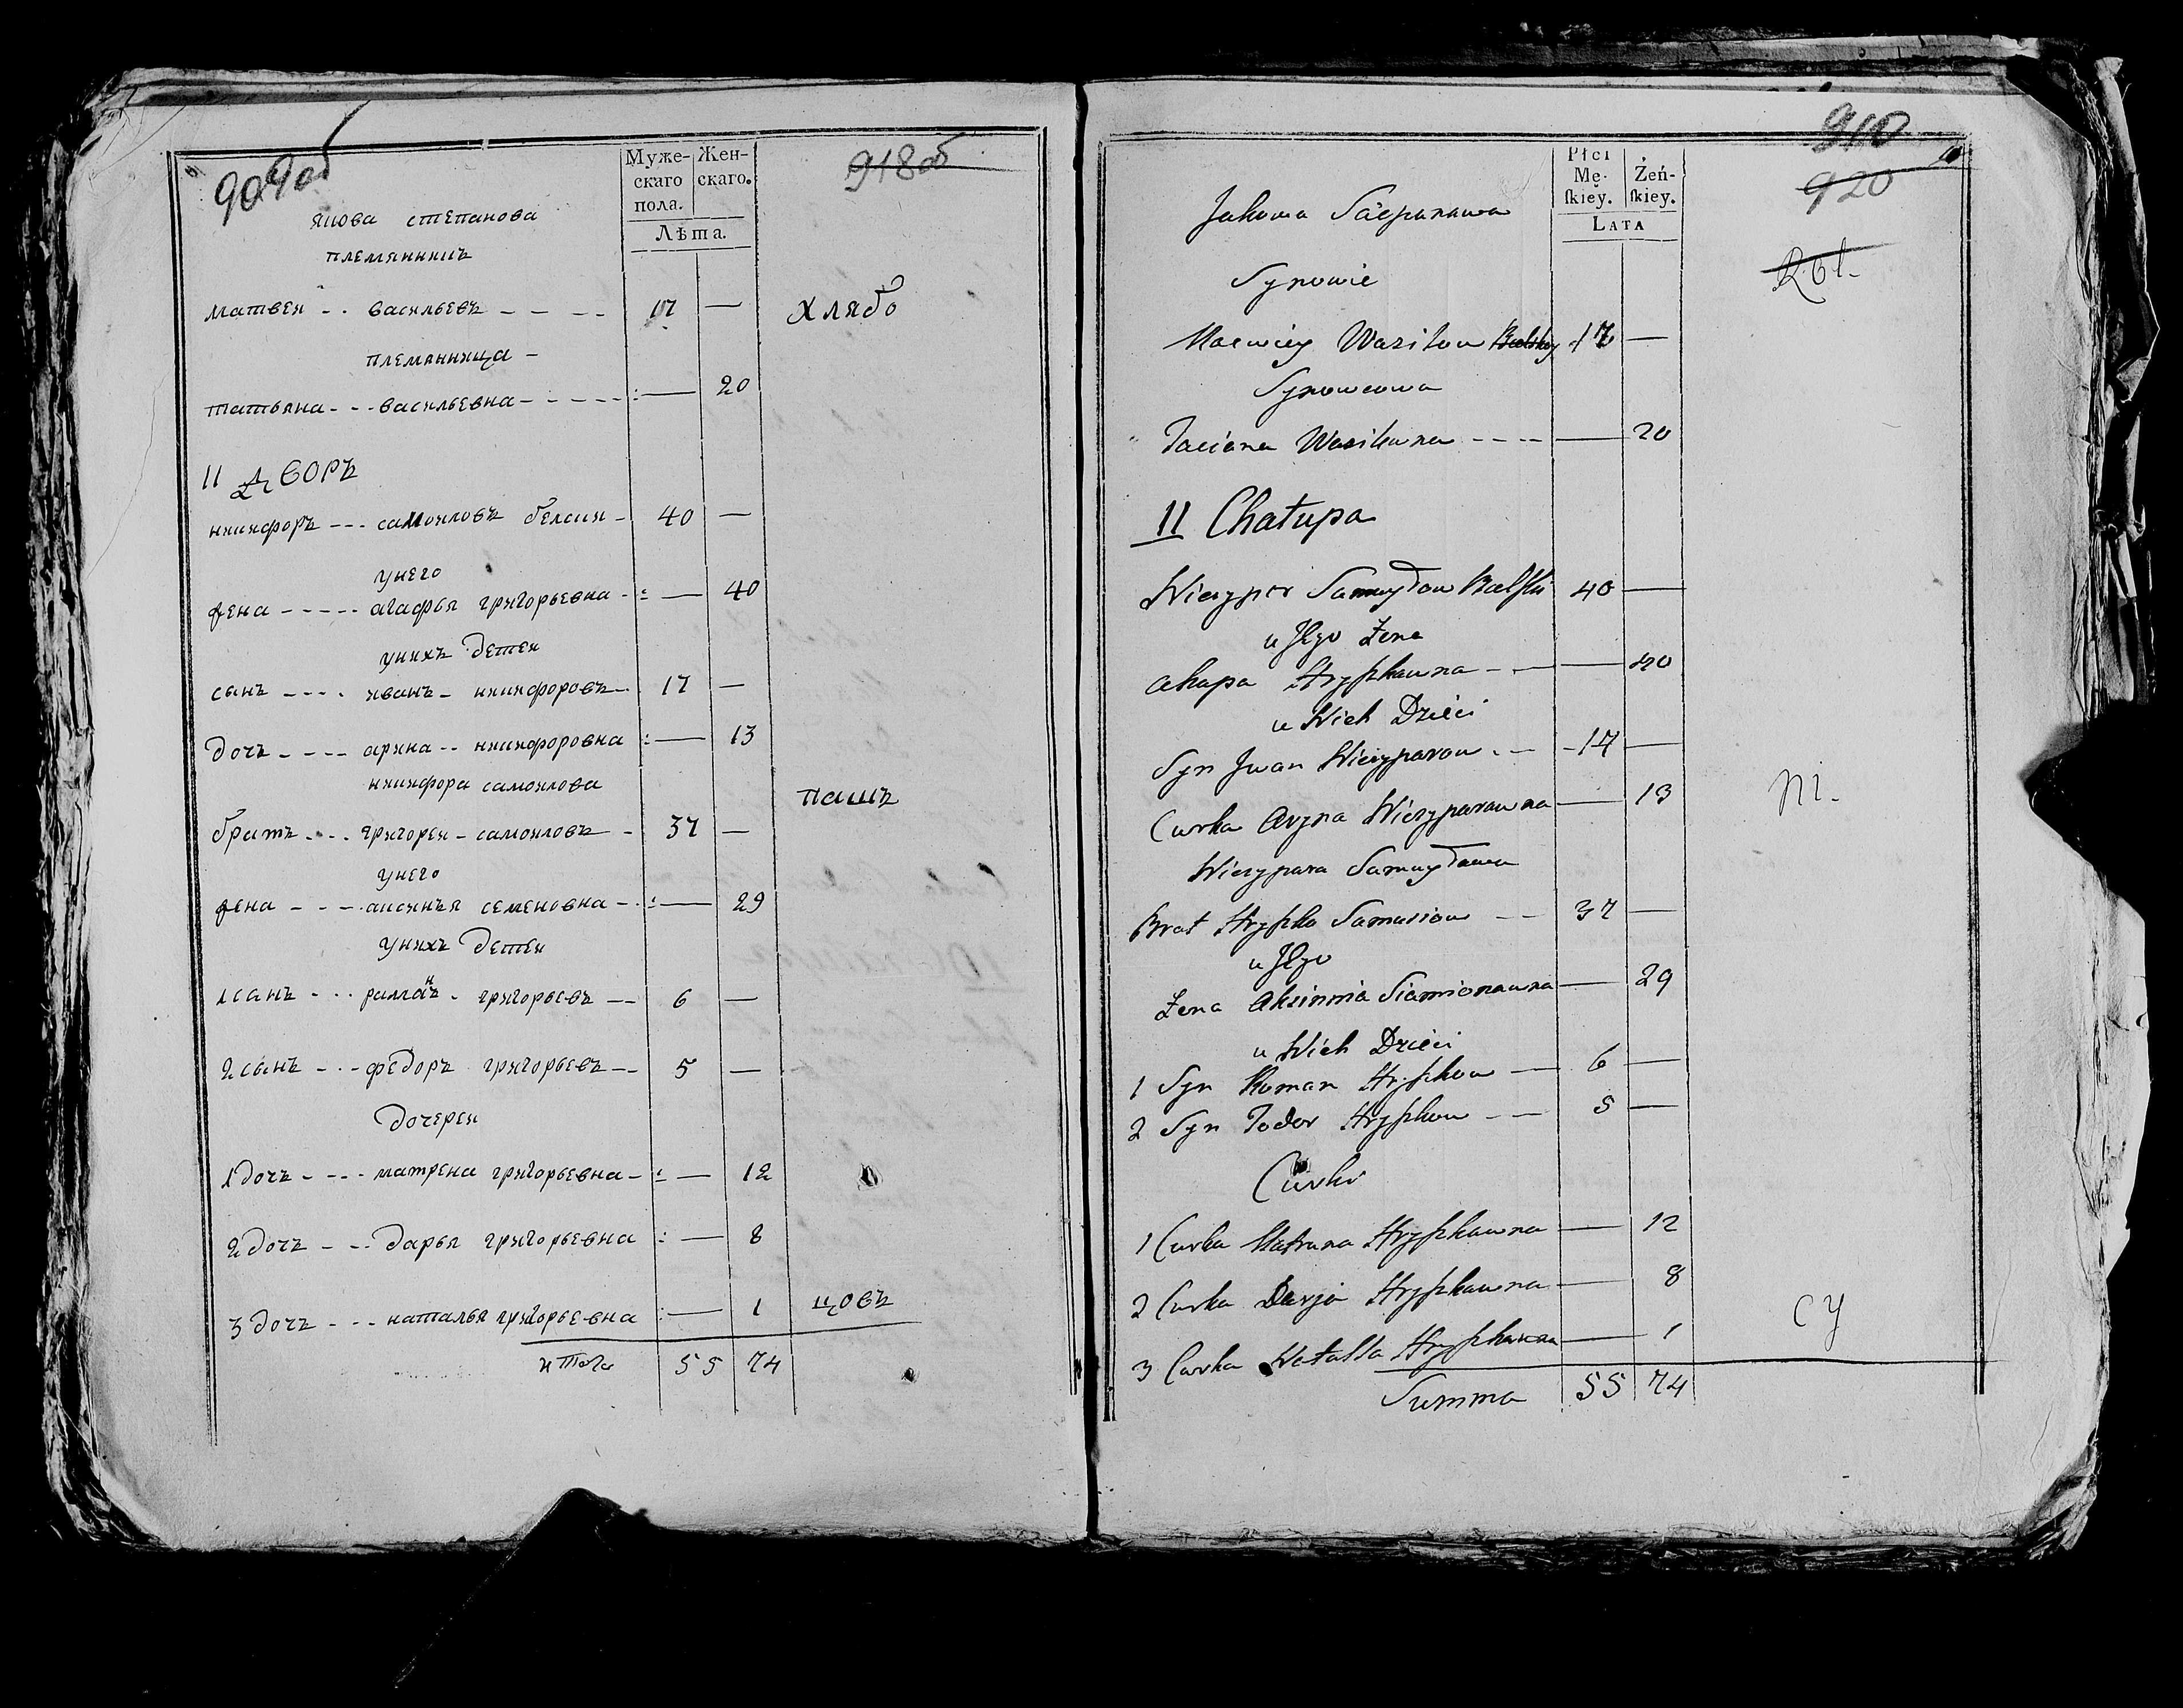 909об
918об
Муже-скаго пола. Жен-скаго.
Лѣта.
якова степанова
племянникъ
матвеи - - василевъ - - - - 17 — хлябо
племянница -
татьяна - - - васильевна - - - - - — 20
11 дворъ
никифоръ - - - самоиловъ белски - 40 —
унего
жена - - - - - агафья григорьевна - — 40
унихъ детеи
сынъ - - - - иванъ - никифоровъ - 17 —
дочъ - - - - арина - - никифоровна — 13
никифора самоилова
пашъ
братъ - - - - григореи - самоиловъ - 37 —
унего
жена - - - - аксинья семеновна - - — 29
унихъ детеи
1 санъ - - - раманъ - григорьевъ - - 6 —
2 сынъ - - - федоръ григорьевъ - - 5 —
дочереи
1 дочъ - - - - матрена григорьевна - — 12
2 дочъ - - - дарья григорьевна — 8
3 дочъ - - - наталья григорьевна — 1 цовъ
итога 55 74
910
920
Płci Mę-skiey. Żeń-skiey.
LATA
Jakowa Sciepanawa
Synowie
Rol-
Maciey Wasilow Balsky 17 —
Synowcowa
Taciana Wasilewna - - - - — 20
11 Chałupa
Niczypor Samuyłow Balski 40 —
u Jego Żena
Ahapa Hryszkawna - - — 40
u Nich Dzieci
Syn Jwan Niczyparow - - 17 —
Curka Aryna Niczyparawna — 13
ni-
Niczypara Samuyłowa
Brat Hryszka Samusiow - - 37 —
u Jego
Żena Aksinnia Siamionawna — 29
u Nich Dzieci
1 Syn Roman Hryszkow - - 6 —
2 Syn Todor Hryszkow - - 5 —
Curki
1 Curka Matruna Hryszkawna — 12
2 Curka Darja Hryszkawna — 8
3 Curka Natalla Hryszkawna — 1
cy
Summa 55 74